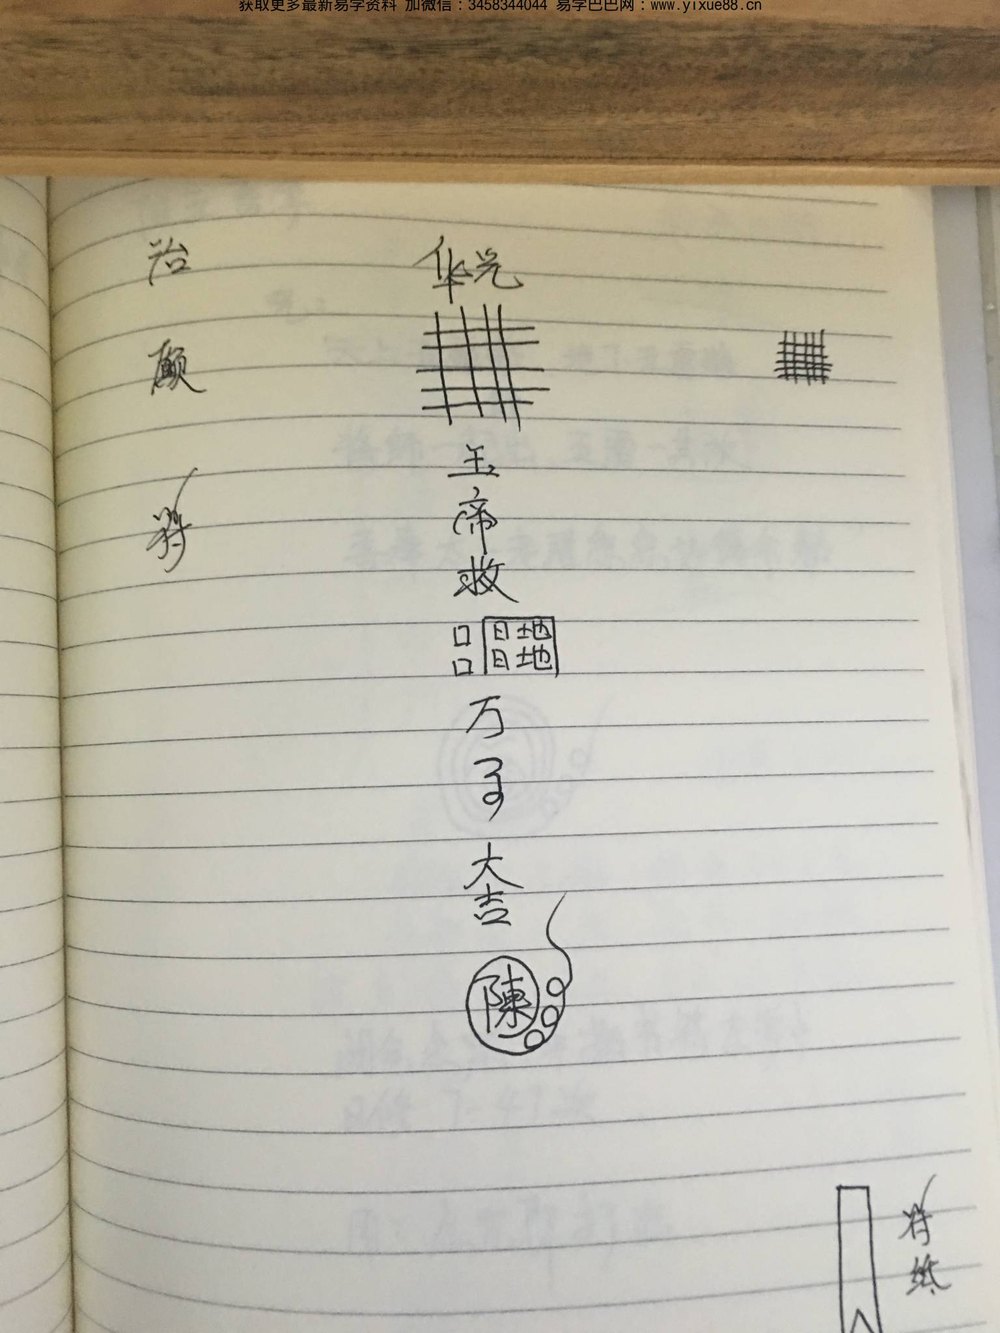 获取更多最新易学资料 加微信：3458344044 易学巴巴网：www.yixue88.cn
治
符
华光
玉
帝
救
口 日 地
口 日 地
万
大
吉
陳
符
纸